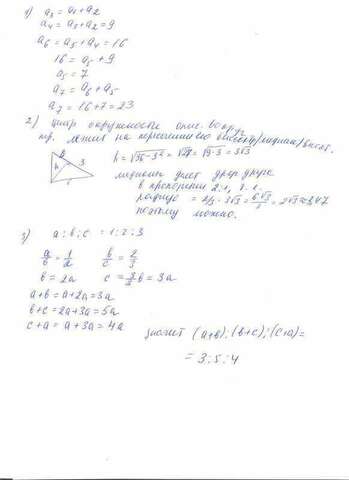 1) a₃ = a₁ + a₂
a₄ = a₃ + a₂ = 9
a₆ = a₅ + a₄ = 16
16 = a₅ + 9
a₅ = 7
a₇ = a₆ + a₅
a₇ = 16 + 7 = 23
2) Центр окружности опис. вокруг
тр. лежит на пересечении его
h 3
h = √36-3² = √27 = √9·3 = 3√3
медианы делят друг друга
в пропорции 2:1, т.
радиус = 2/3 · 3√3 = 6√3/3 = 2√3 ≈ 3,47
поэтому можно.
3) a : b : c = 1 : 2 : 3
a/b = 1/2 b/c = 2/3
b = 2a c = 3/2 b = 3a
a+b = a+2a = 3a
b+c = 2a+3a = 5a
c+a = a+3a = 4a
значит (a+b) : (b+c) : (c+a) =
= 3 : 5 : 4